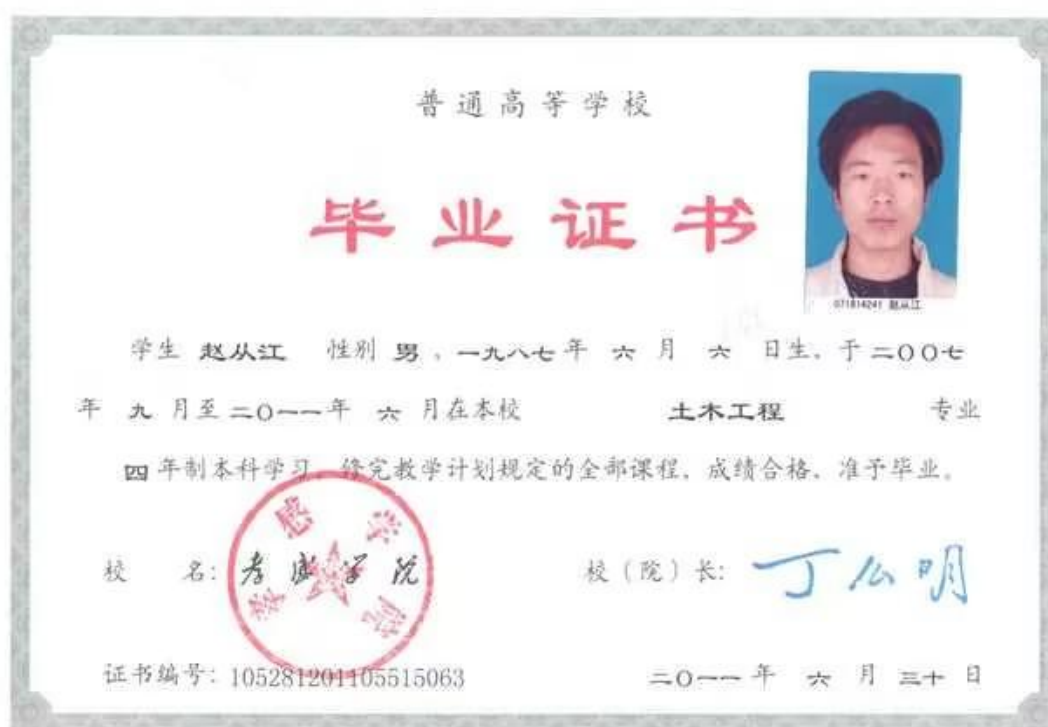 普通高等学校
毕业证书
071814241 赵从江
学生 赵从江 性别 男 ,一九八七年 六 月 六 日生,于二〇〇七
年 九 月至二〇一一年 六 月在本校 土木工程 专业
四年制本科学习,修完教学计划规定的全部课程,成绩合格,准予毕业。
校 名: 孝感学院
孝感学院
校(院)长: 丁公明
证书编号: 105281201105515063
二〇一一年 六 月 三十 日